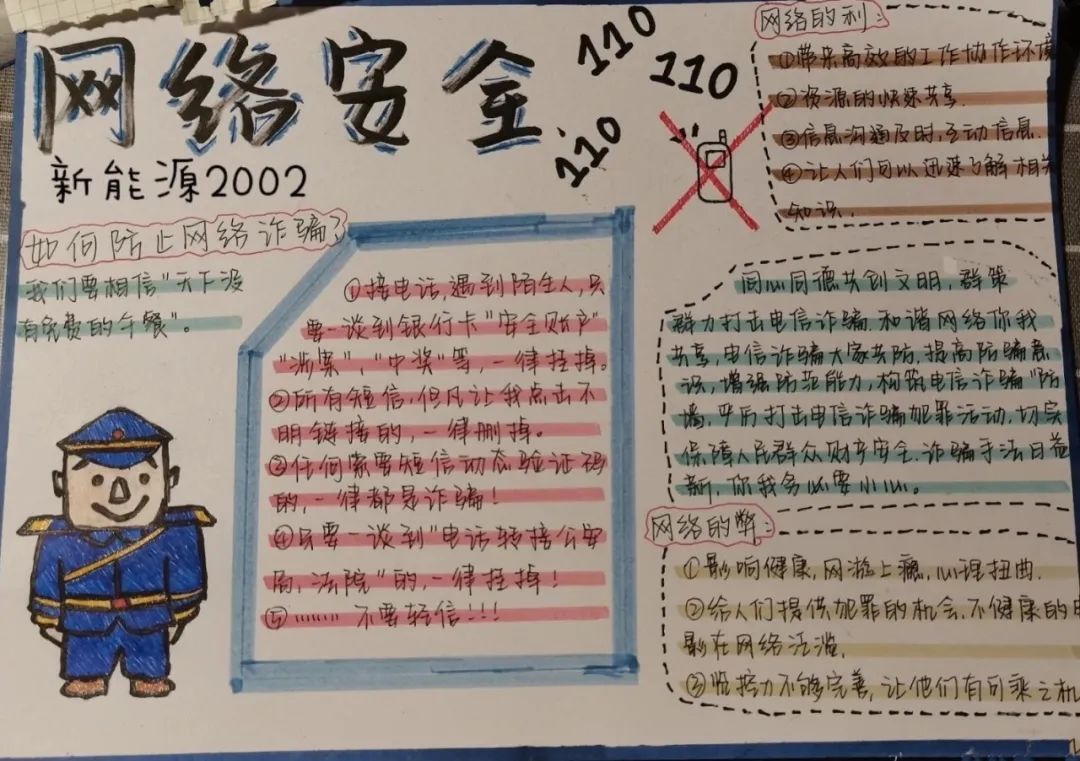 网络安全
110
110
110
新能源2002
如何防止网络诈骗了
我们要相信“天下没
有免费的午餐”。
①接电话,遇到陌生人,只
要一谈到银行卡“安全财产”
“涉案”,“中奖”等,一律挂掉。
②所有短信,但凡让我点击不
明链接的,一律删掉。
③任何索要短信动态验证码
的,一律都是诈骗!
④只要一谈到“电话转接公安
局,法院”的,一律挂掉!
⑤……… 不要轻信!!!
网络的利:
①带来高效的工作协作环境
②资源的快速共享.
③信息沟通及时,互动信息.
④让人们可以迅速了解相关
知识.
同心同德共创文明,群策
群力打击电信诈骗.和谐网络你我
共享,电信诈骗大家共防,提高防骗意
识,增强防范能力,构筑电信诈骗“防
墙,严厉打击电信诈骗犯罪活动,切实
保障人民群众财产安全.诈骗手法日益
新,你我多心要小心。
网络的弊:
①影响健康,网游上瘾,心理扭曲.
②给人们提供犯罪的机会.不健康的电
影在网络泛滥,
③监控力不够完善,让他们有可乘之机